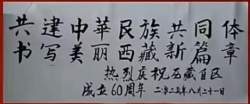 共建中华民族共同体
书写美丽西藏新篇章
热烈庆祝西藏自区
成立60周年 二0二五年八月二十一日